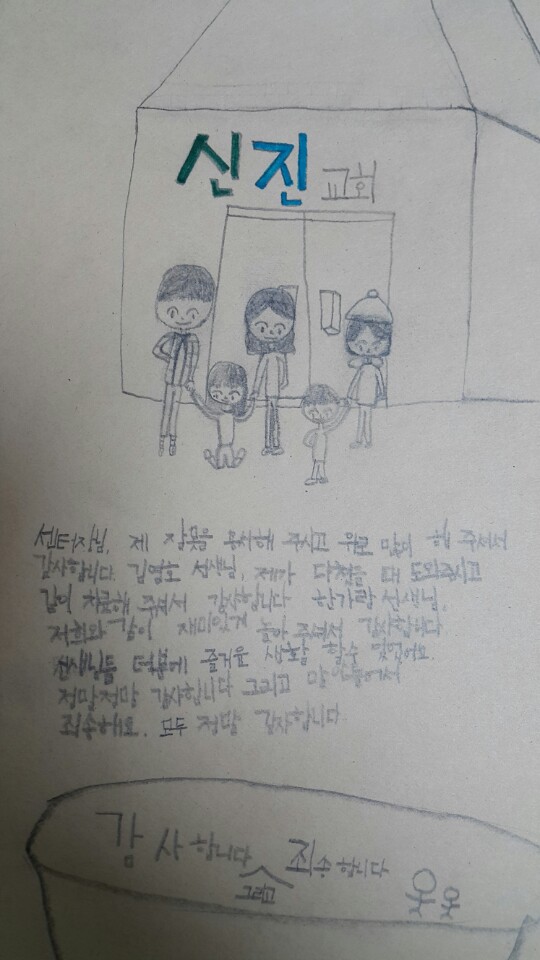 신진교회
센터장님, 제 잘못을 용서해 주시고 위로 많이 해 주셔서
감사합니다. 김영호 선생님, 제가 다쳤을 때 도와주시고
같이 치료해 주셔서 감사합니다 한가람 선생님,
저희와 같이 재미있게 놀아 주셔서 감사합니다
선생님들 덕분에 즐거운 생활 할수 있었어요.
정말정말 감사합니다 그리고 말 안들어서
죄송해요. 모두 정말 감사합니다
감사합니다 그리고 죄송합니다